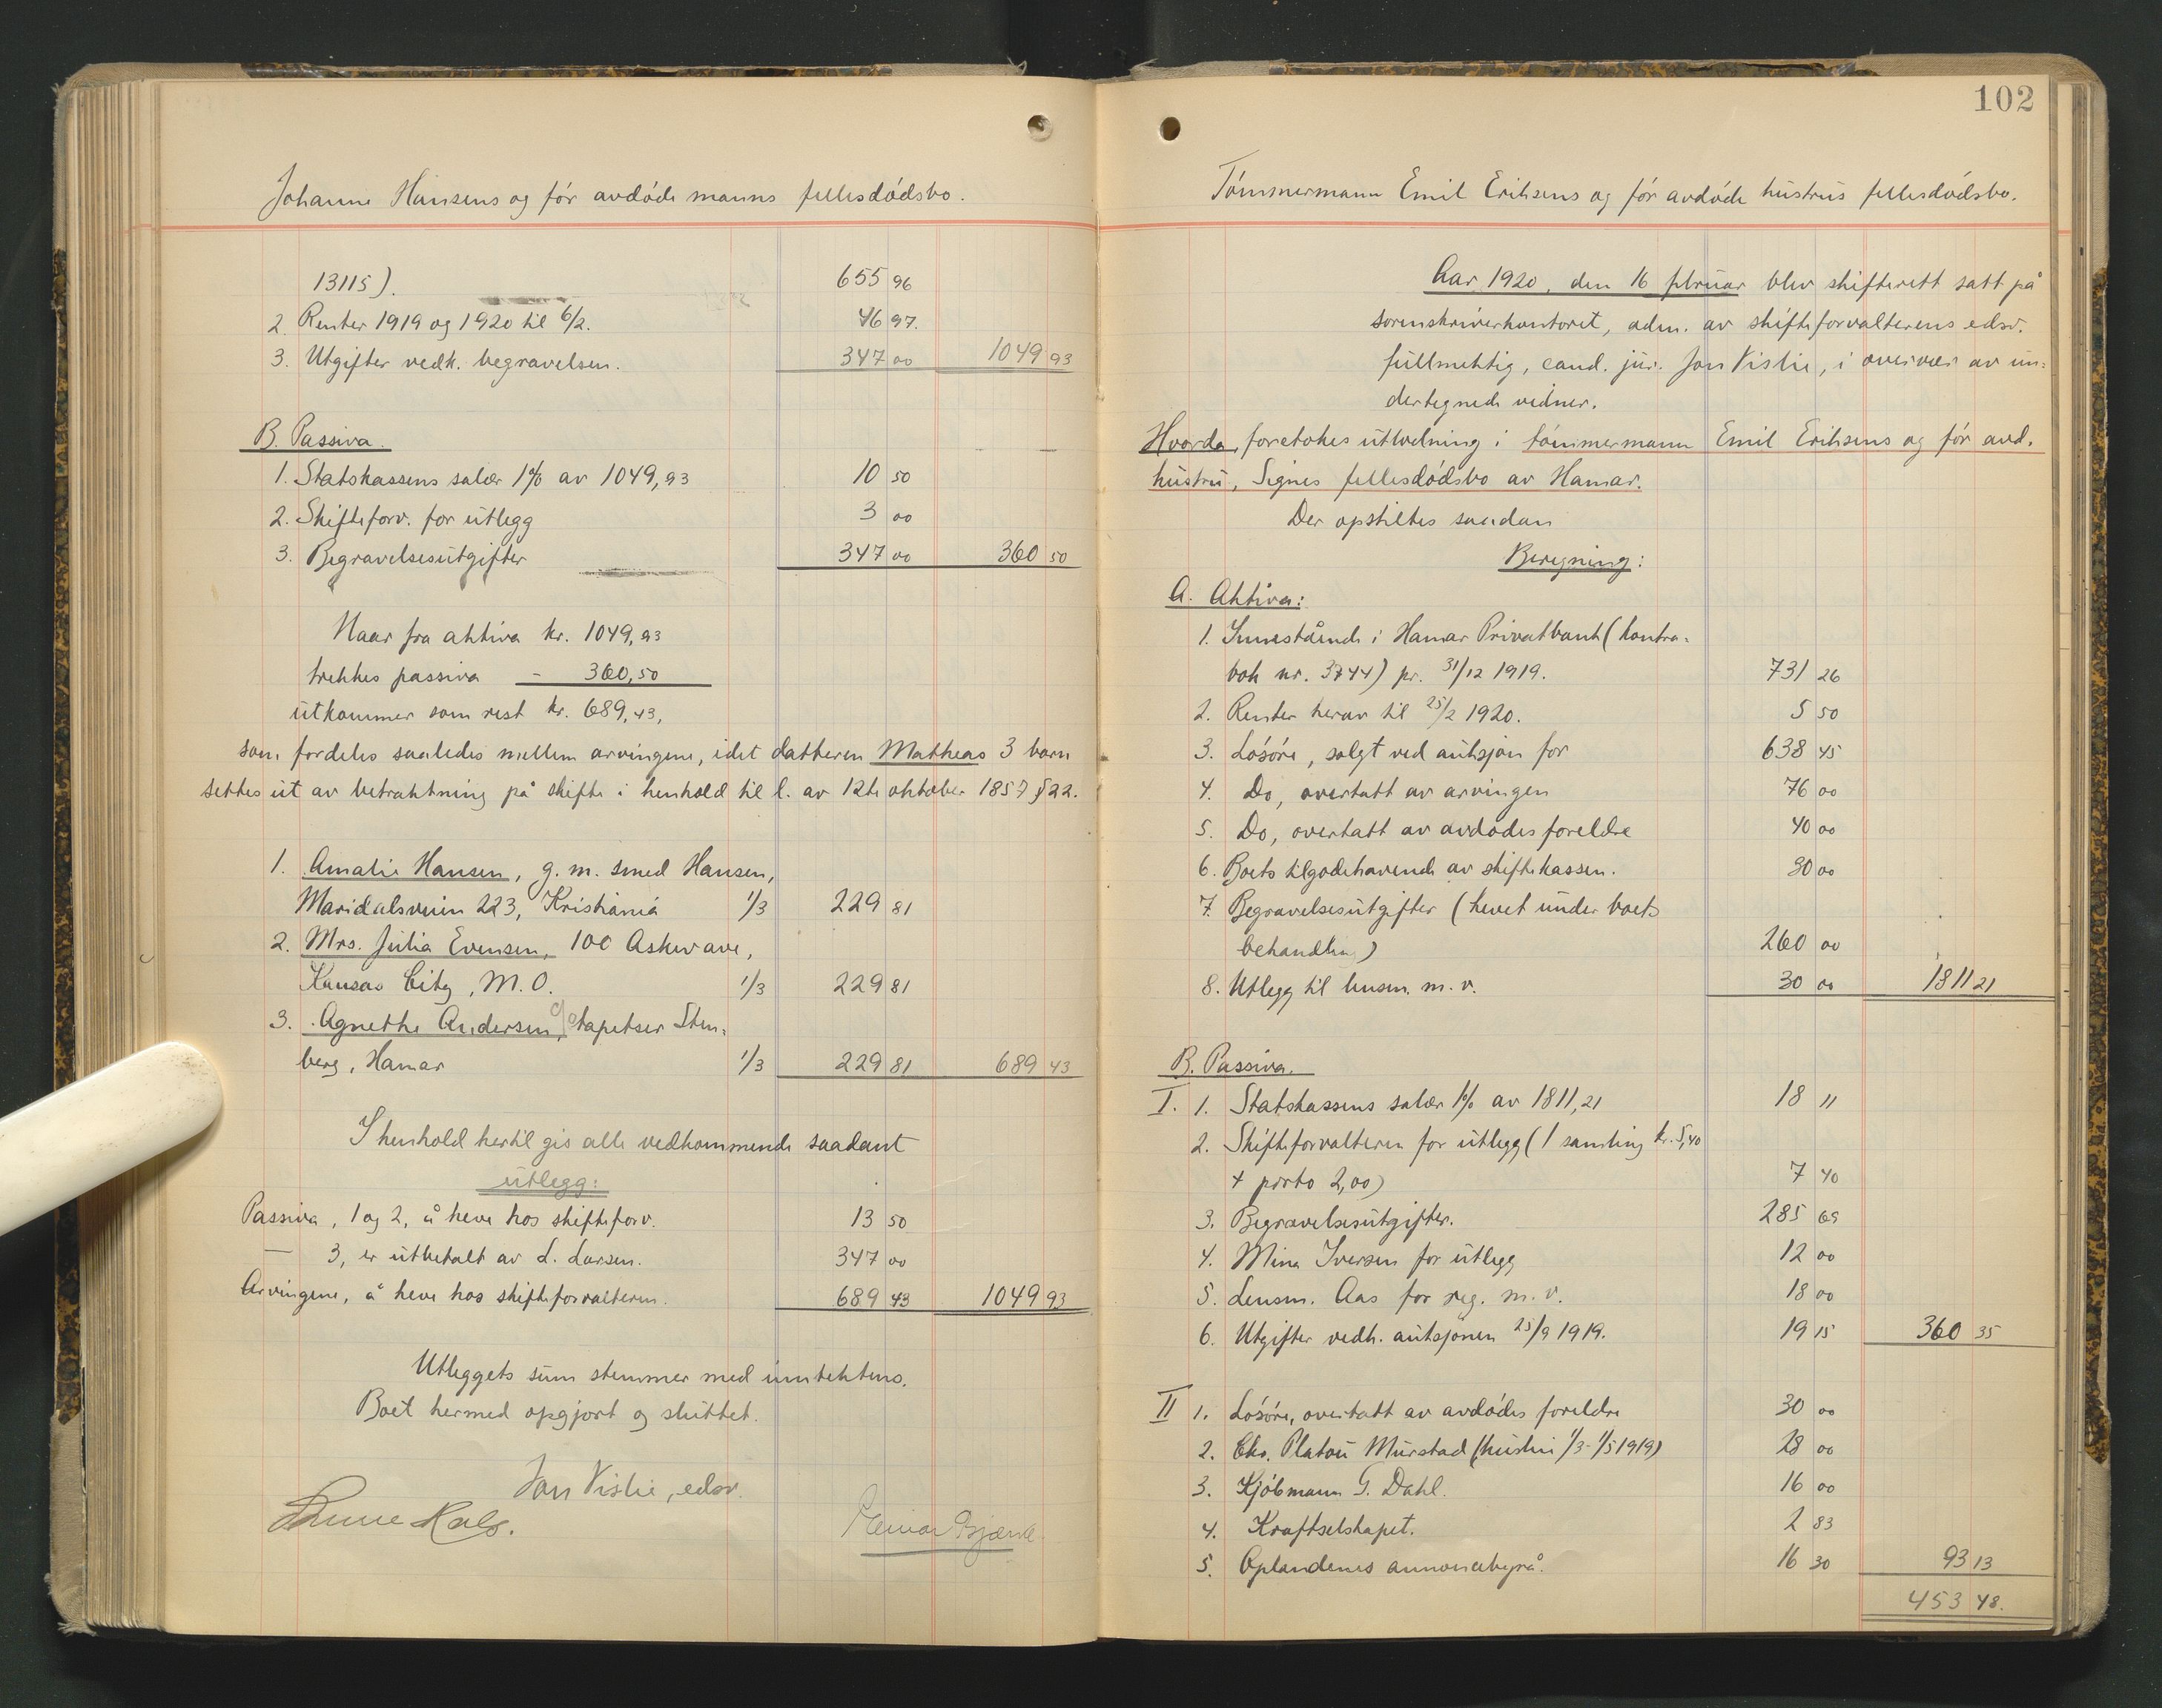 Johanne Hansens og før avdøde manns fellesdødsbo.
13115). 655 96
2. Renter 1919 og 1920 til 6/2. 46 97.
3. Utgifter vedk. begravelsen. 347 00 1049 93
B. Passiva.
1. Statskassens salær 1% av 1049,93 10 50
2. Skifteforv. for utlegg 3 00
3. Begravelsesutgifter 347 00 360 50
Naar fra aktiva kr. 1049,93
trekkes passiva - 360,50
utkommer som rest kr. 689,43,
som fordeles saaledes mellem arvingene, idet datteren Matheas 3 barn
settes ut av betraktning på skifte i henhold til l. av 12te oktober 1857 § 22.
1. Amalie Hansen, g. m. smed Hansen,
Maridalsveien 223, Kristiania 1/3 229 81
2. Mrs. Julia Evensen, 100 Askew ave,
Kansas City, M.O. 1/3 229 81
3. Agnethe Andersen, c/o tapetser Sten-
berg, Hamar 1/3 229 81 689 43
I henhold hertil gis alle vedkommende saadant
utlegg:
Passiva, 1 og 2, å heve hos skifteforv. 13 50
— 3, er utbetalt av L. Larsen. 347 00
Arvingene, å heve hos skifteforvalteren. 689 43 1049 93
Utleggets sum stemmer med inntektens.
Boet hermed opgjort og sluttet.
Jon Vislie, edsv.
102
Tømmermann Emil Eriksens og før avdøde hustrus fellesdødsbo.
Aar 1920, den 16 februar blev skifterett satt på
sorenskriverkontoret, adm. av skifteforvalterens edsv.
fullmektig, cand. jur. Jon Vislie, i overvær av un-
dertegnede vidner.
Hvorda foretokes utlodning i tømmermann Emil Eriksens og før avd.
hustru, Signes fellesdødsbo av Hamar.
Der opstiltes saadan
Beregning:
A. Aktiva:
1. Innestående i Hamar Privatbank (kontra-
bok nr. 3744) pr. 31/12 1919. 731 26
2. Renter herav til 25/2 1920. 5 50
3. Løsøre, solgt ved auksjon for 638 45
4. Do, overtatt av arvingen 76 00
5. Do, overtatt av avdødes foreldre 40 00
6. Boets tilgodehavende av skiftekassen. 30 00
7. Begravelsesutgifter (hevet under boets
behandling) 260 00
8. Utlegg til lensm. m. v. 30 00 1811 21
B. Passiva.
I. 1. Statskassens salær 1% av 1811,21 18 11
2. Skifteforvalteren for utlegg (1 samling kr. 5,40
+ porto 2,00) 7 40
3. Begravelsesutgifter. 285 69
4. Mina Iversen for utlegg 12 00
5. Lensm. Aas for reg. m. v. 18 00
6. Utgifter vedk. auksjonen 25/9 1919. 19 15 360 35
II 1. Løsøre, overtatt av avdødes foreldre 30 00
2. Eks. Platou Murstad (husleie 1/3 - 1/5 1919) 28 00
3. Kjøbmann G. Dahl. 16 00
4. Kraftselskapet. 2 83
5. Oplandenes annoncebyrå. 16 30 93 13
453 48.